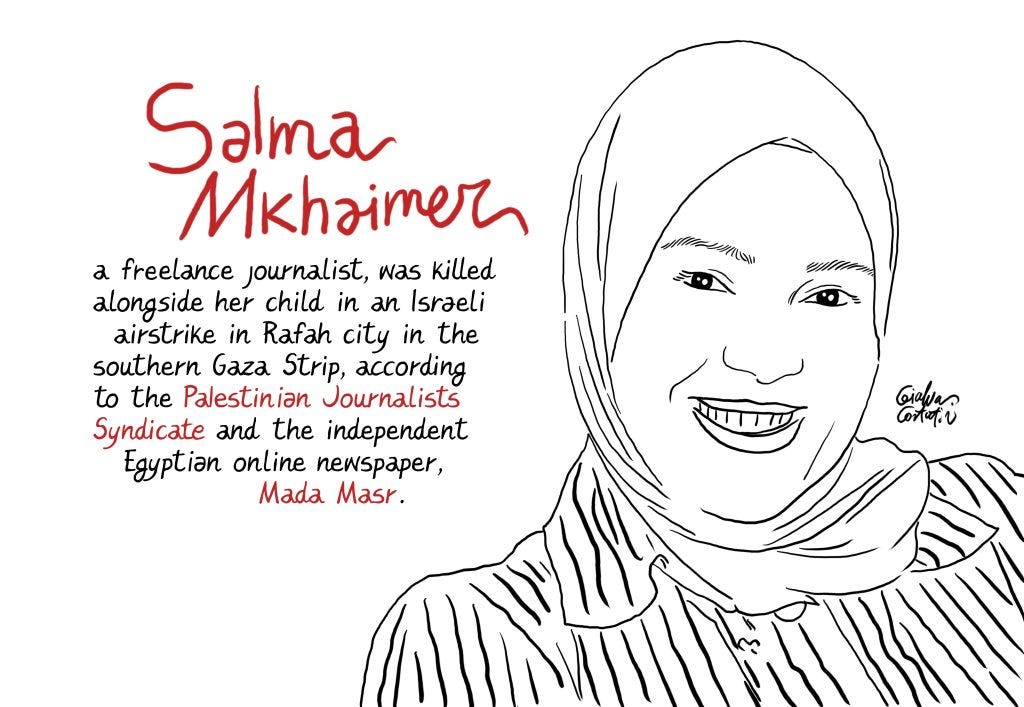 Salma
Mkhaimer
a freelance journalist, was killed
alongside her child in an Israeli
airstrike in Rafah city in the
southern Gaza Strip, according
to the Palestinian Journalists
Syndicate and the independent
Egyptian online newspaper,
Mada Masr.